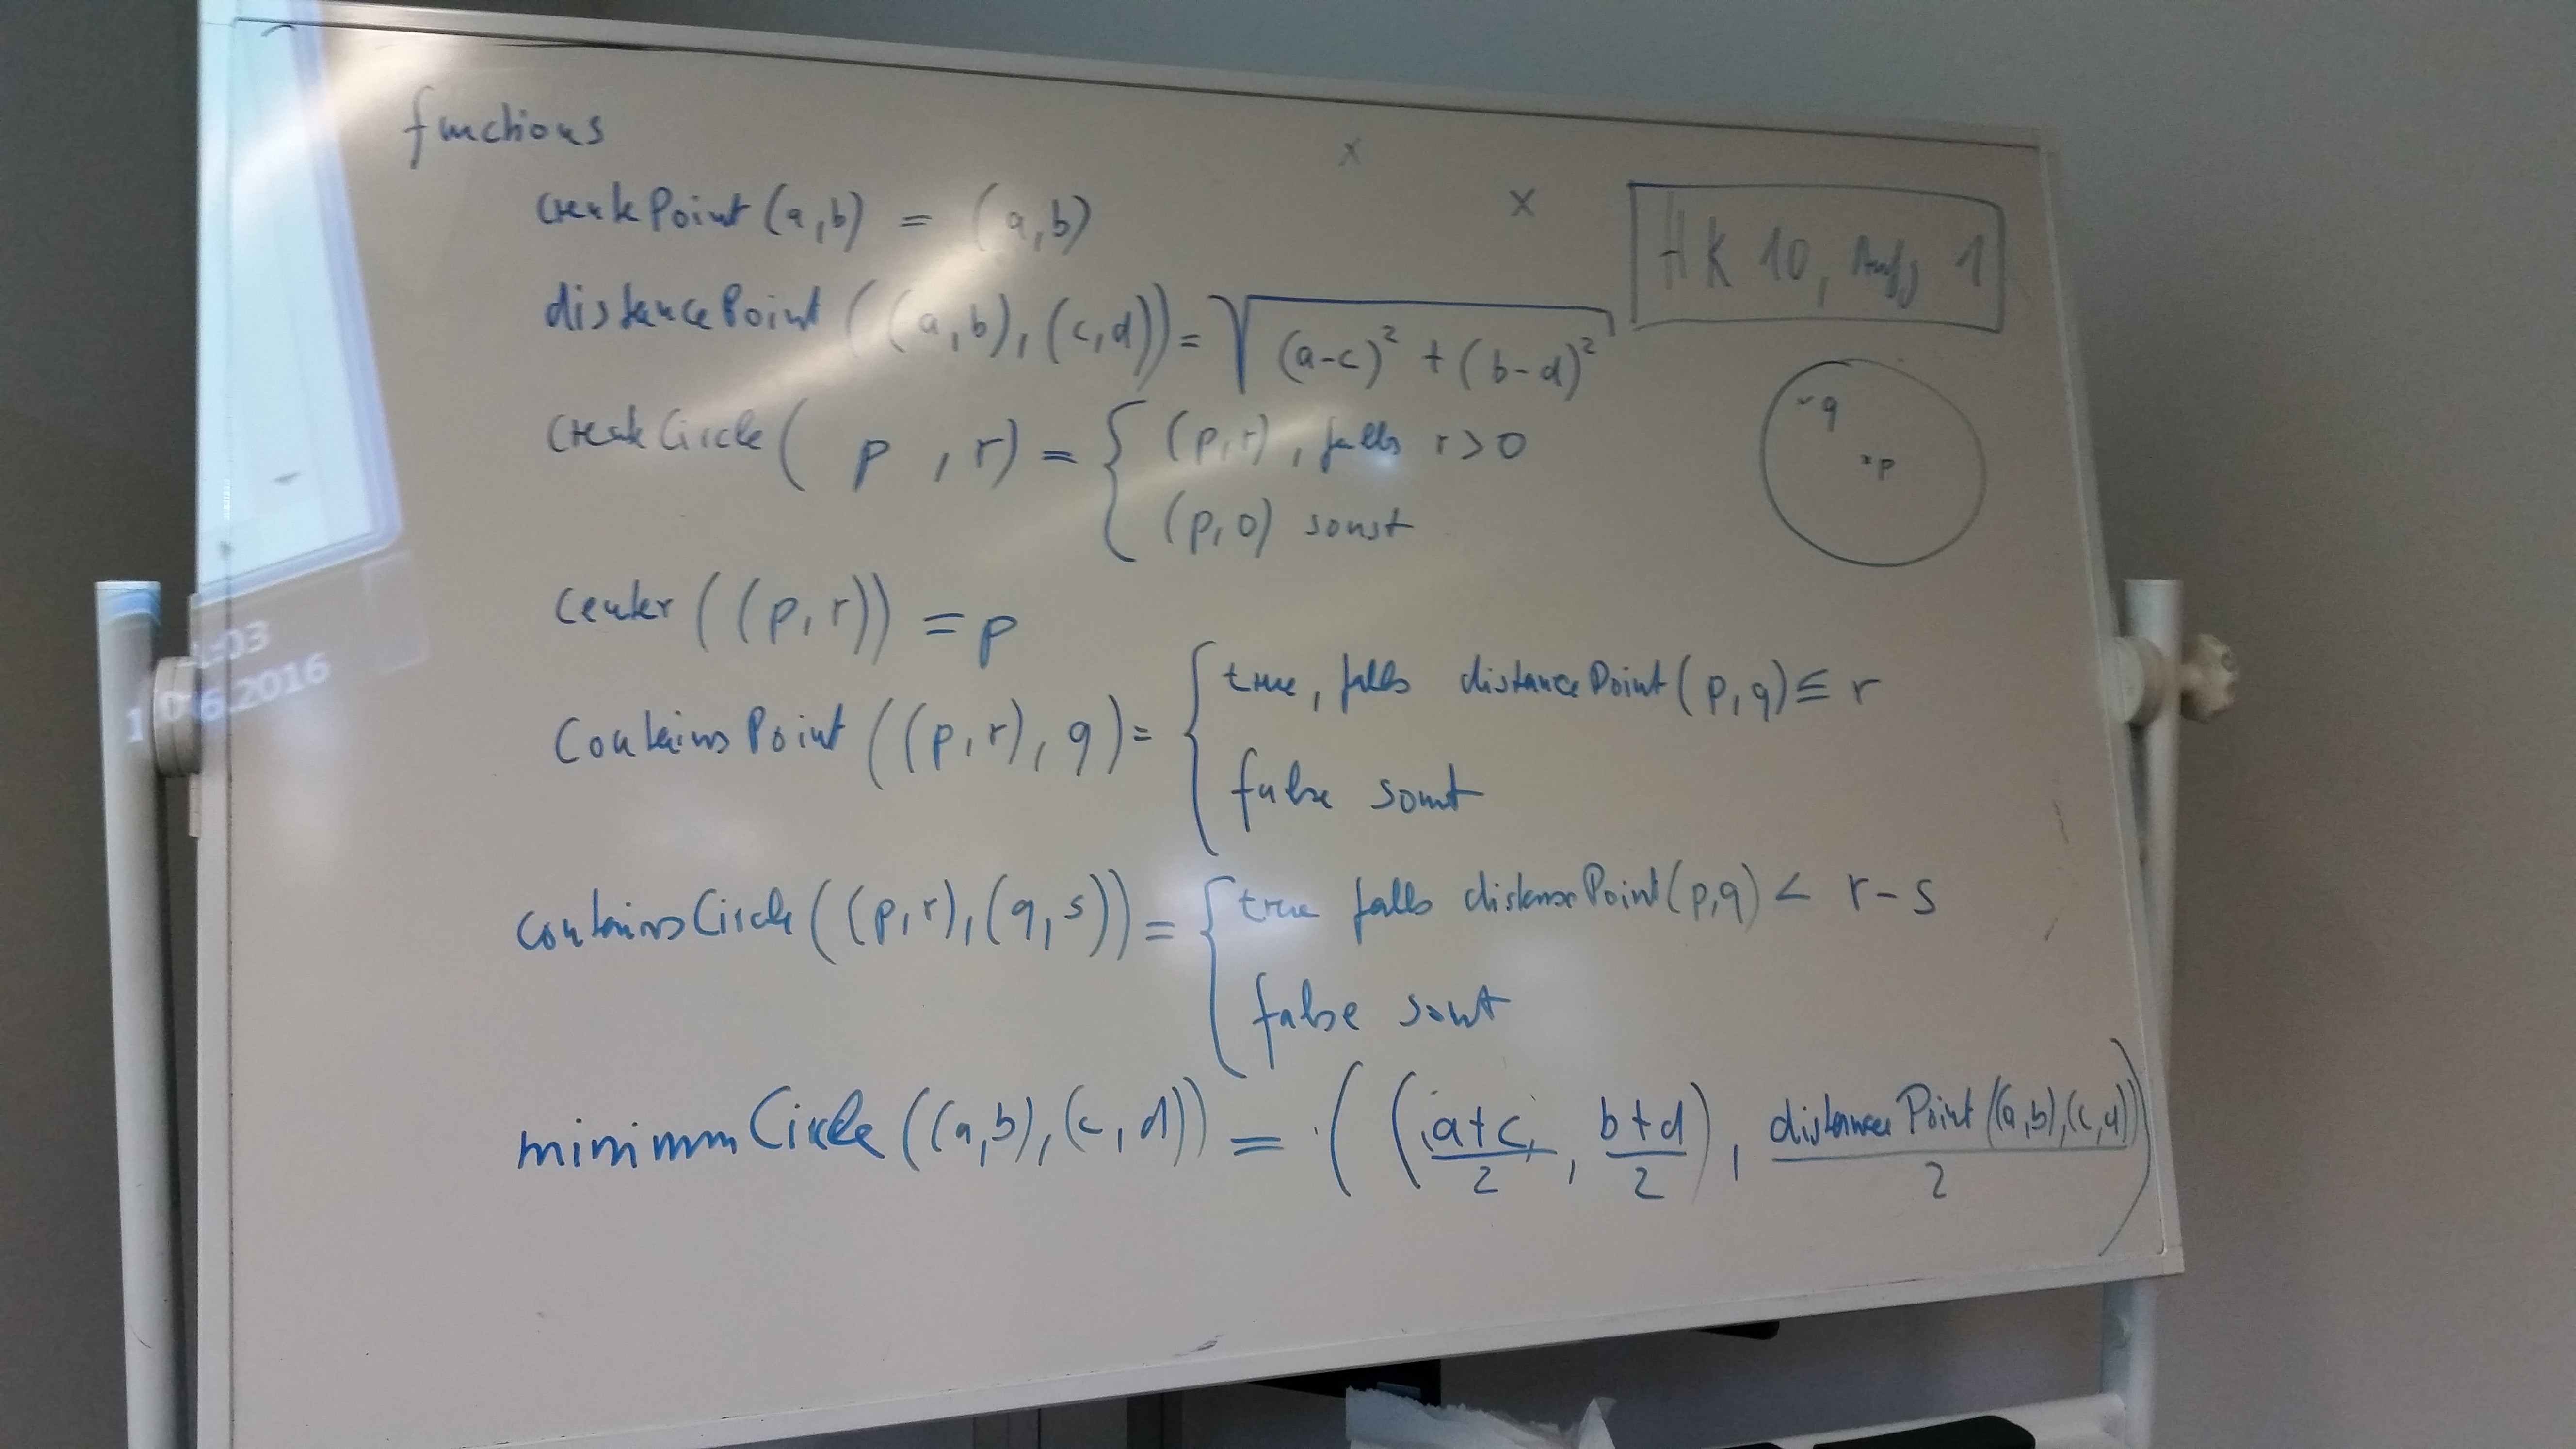 functions
createPoint (a,b) = (a,b)
x
x
HK 10, Aufg 1
distancePoint ((a,b),(c,d)) = √((a-c)² + (b-d)²)
createCircle ( p , r) = { (p,r), falls r>0
(p,0) sonst
q
p
center ((p,r)) = p
containsPoint ((p,r), q) = { true, falls distancePoint (p,q) ≤ r
false sonst
containsCircle ((p,r),(q,s)) = { true falls distancePoint (p,q) < r-s
false sonst
minimumCircle ((a,b),(c,d)) = ((a+c/2, b+d/2), distancePoint((a,b),(c,d))/2)
:03
6.2016